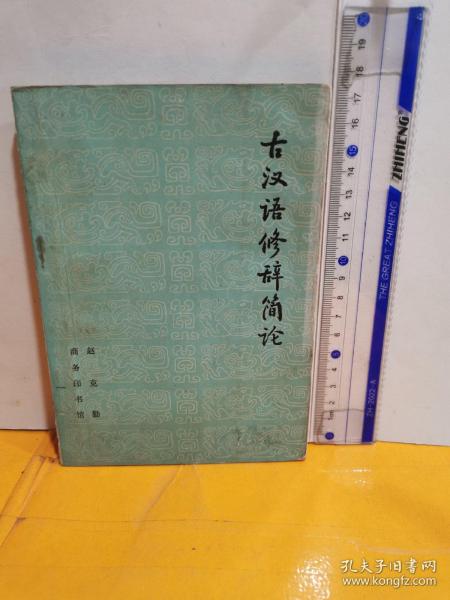 古汉语修辞简论
赵克勤
商务印书馆
ZHIMENG
THE GREAT ZHIMENG
ZH-2002-A
1cm 2 3 4 5 6 7 8 9 10 11 12 13 14 15 16 17 18 19 20
孔夫子旧书网
www.kongfz.com